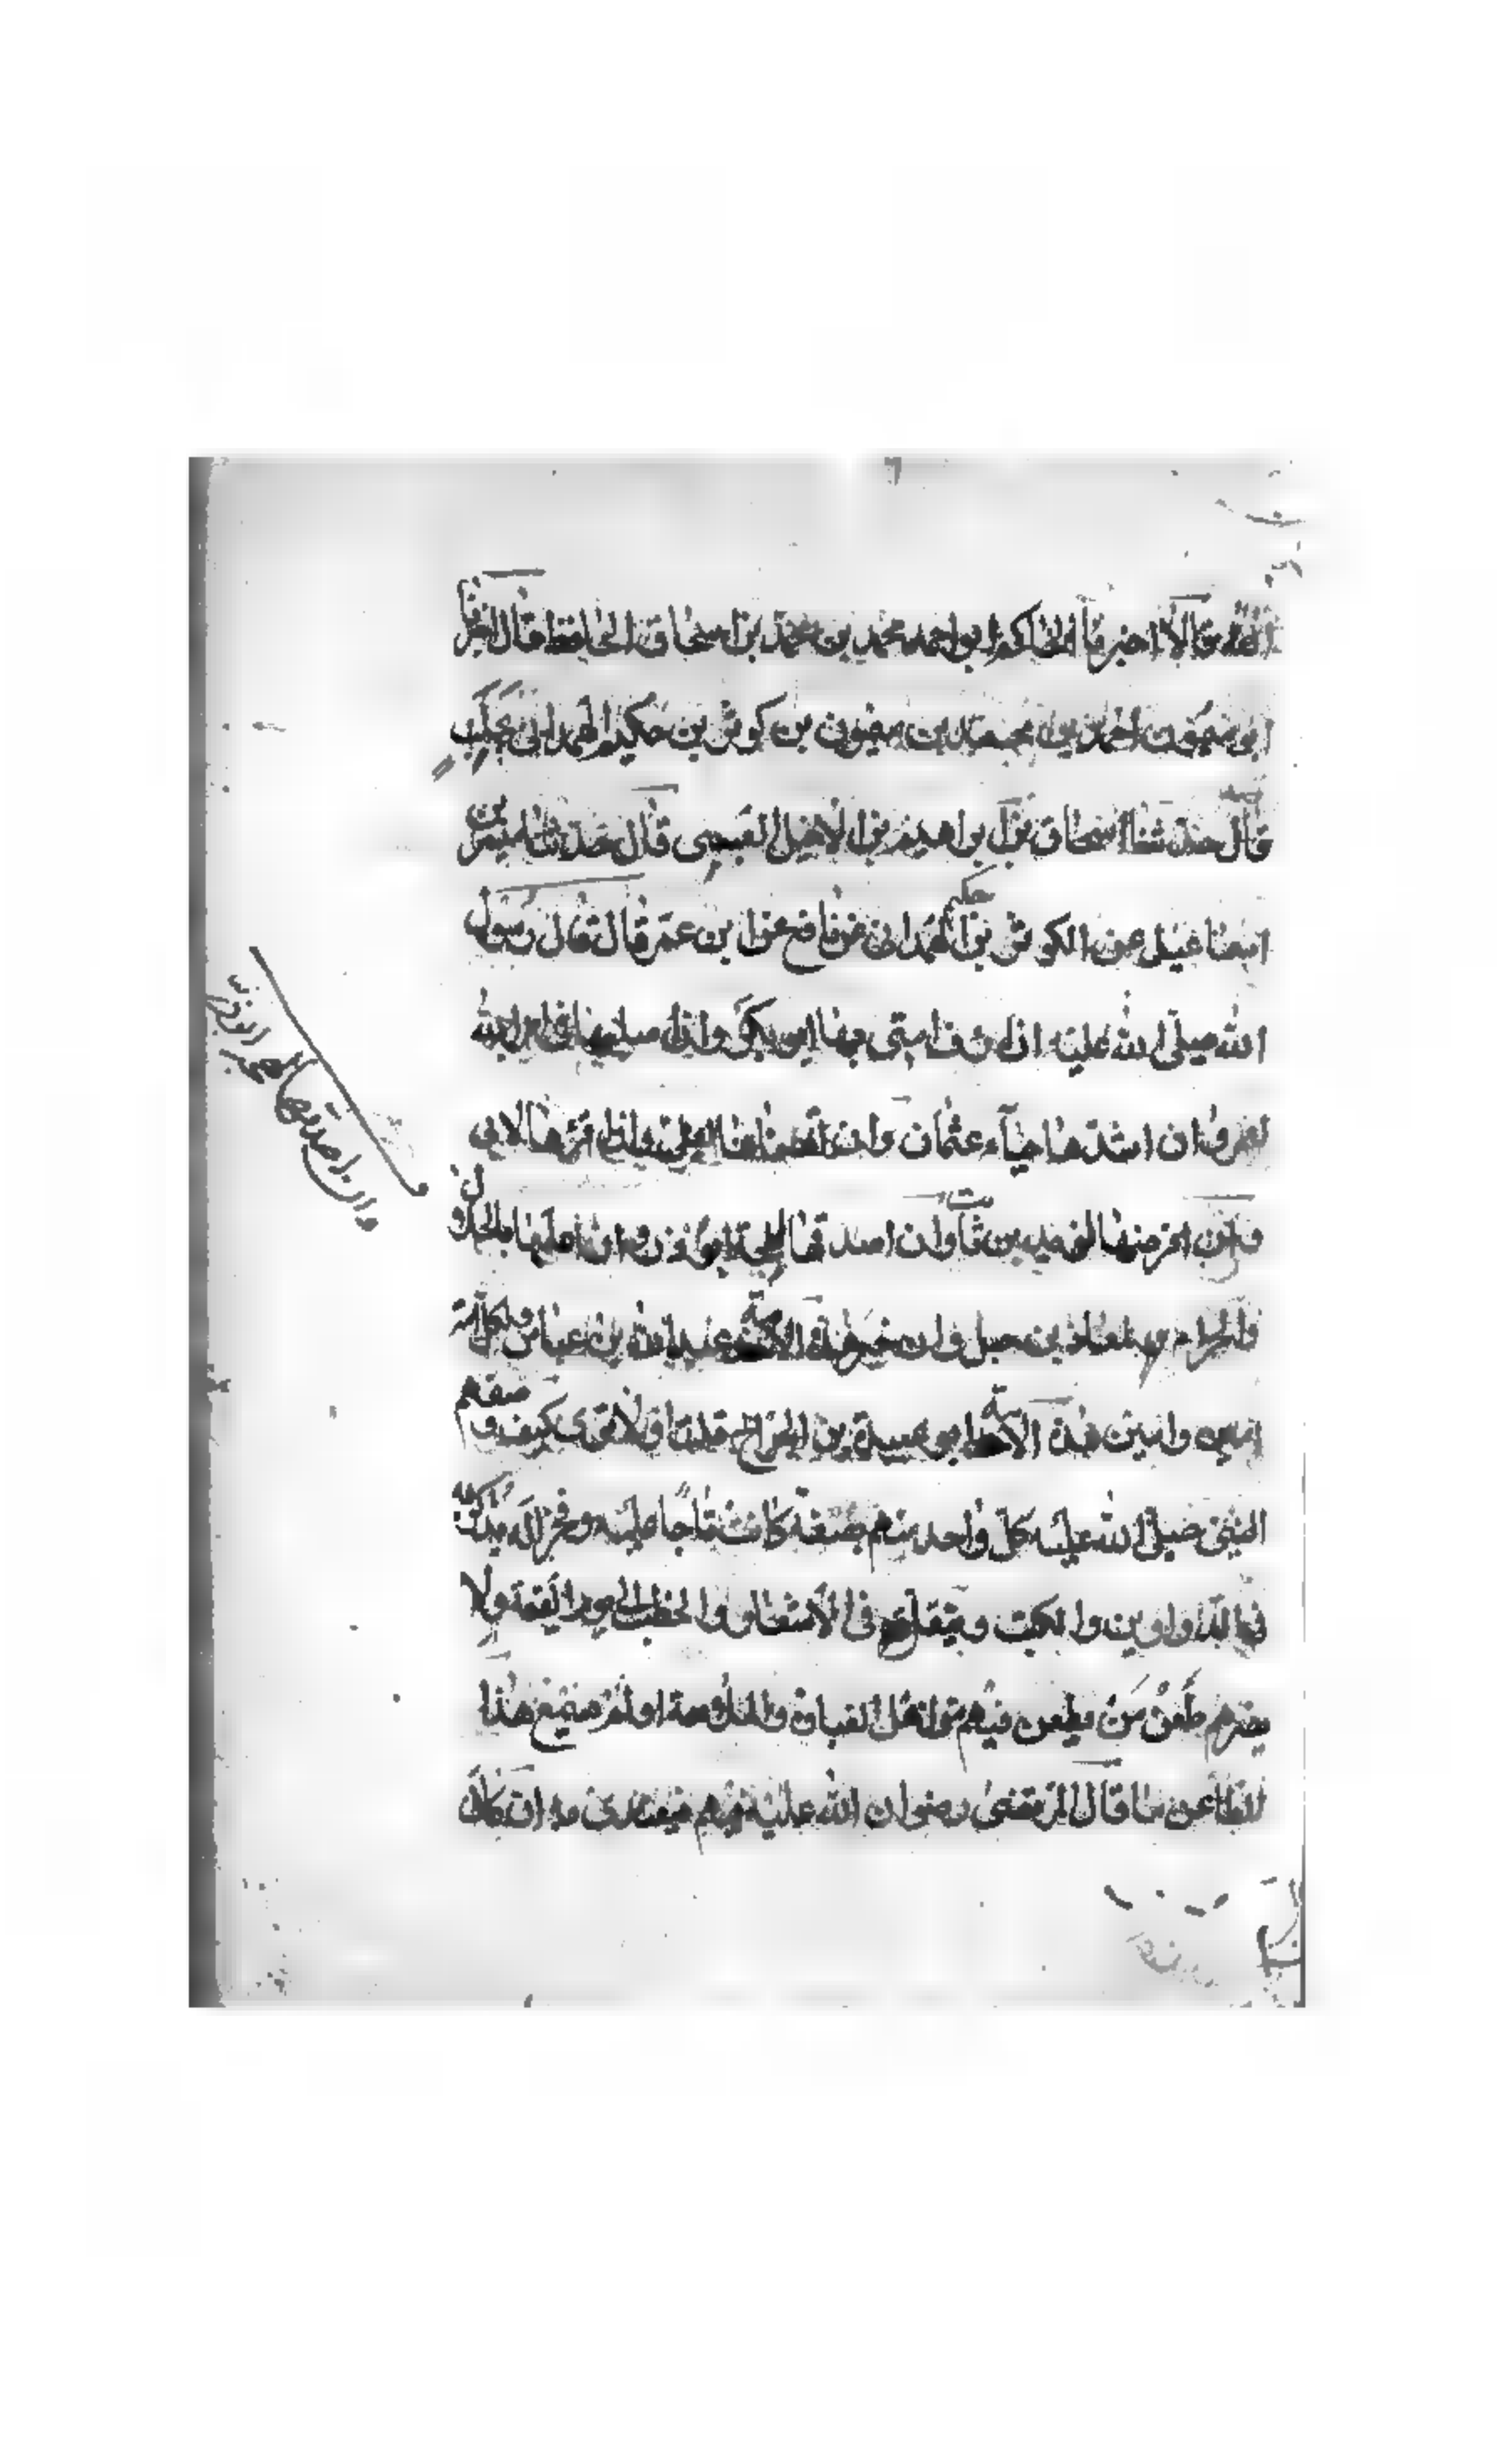 الله قالا اخبرنا الحاكم ابو احمد محمد بن محمد بن اسحاق الحافظ قال اخبرنا
ابو ميمون احمد بن محمد بن ميمون بن كوثر بن حكيم الهمداني بحلب
قال حدثنا اسحاق بن ابراهيم بن الاخيل العبسي قال حدثنا مبشر بن
اسماعيل عن الكوثر بن حكيم الهمداني عن نافع عن ابن عمر قال قال رسول
الله صلى الله عليه ان ارؤف امتي بها ابو بكر وان اصلبها في امر الله
لعمر وان اشدها حياء عثمان وان اقضاها لعلي وان اقرؤها لابي
وان افرضها لزيد بن ثابت وان اصدقها لهجة ابو ذر وان اعلمها بالحلال و
الحرام معاذ بن جبل وان حبر هذه الامة عبد الله بن عباس ولكل امة
امين وامين هذه الامة ابو عبيدة بن الجراح قلت افلا ترى كيف وصفهم
النبي صلى الله عليه كل واحد منهم بصفة كانت تاجا عليه وفخرا له يذكر به
في الدواوين والكتب وينقل في الاشعار والخطب الى يوم القيمة ولا
يضرهم طعن من يطعن فيهم من اهل او لم يمنع هذا
عن ما قال المرتضى رضوان الله عليه فيهم ان كان
وان اصدقها لهجة ابو ذر